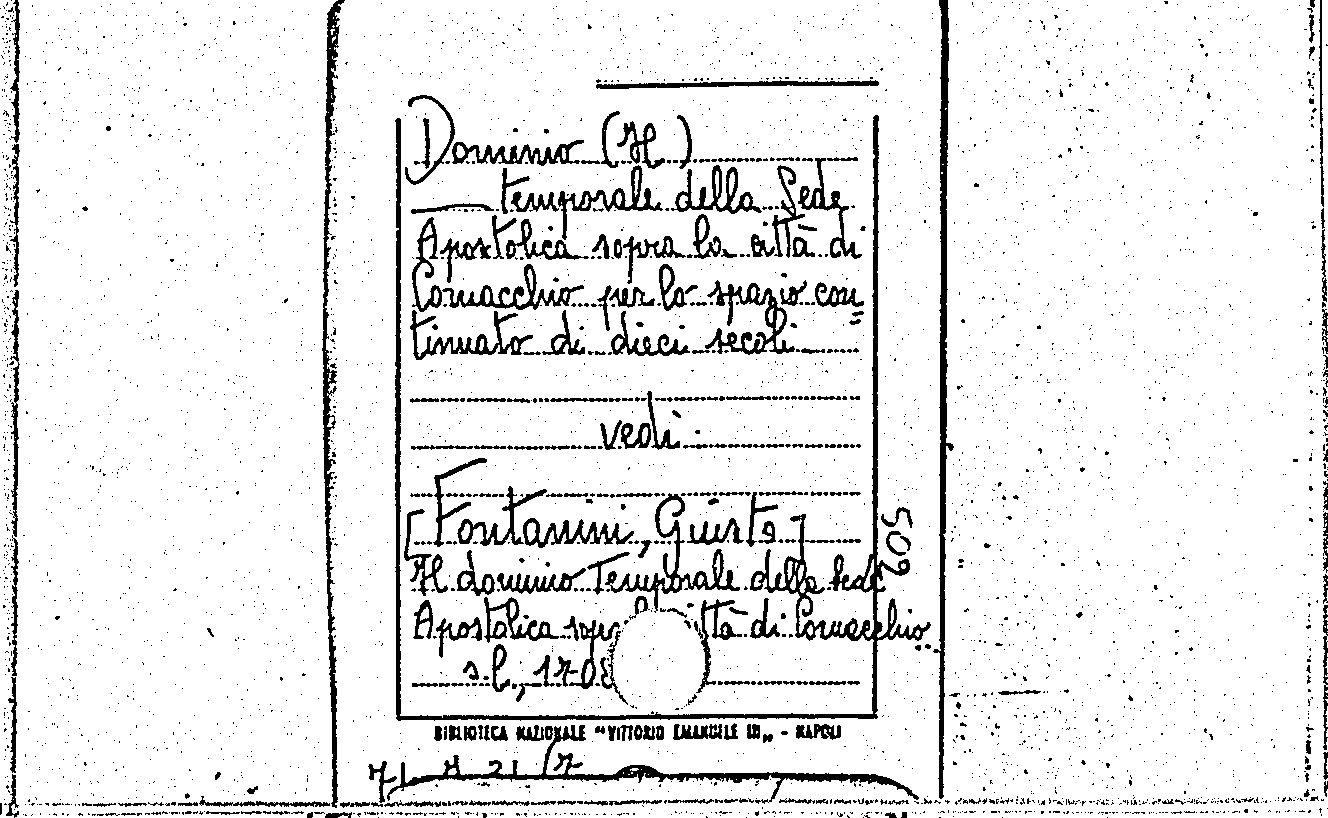 Dominio (Il)
— temporale della Sede
Apostolica sopra la città di
Comacchio per lo spazio con=
tinuato di dieci secoli
vedi
[Fontanini, Giusto]
Il dominio Temporale della Sede
Apostolica sopr città di Comacchio..
s.l., 1708
502
BIBLIOTECA NAZIONALE "VITTORIO EMANUELE III„ - NAPOLI